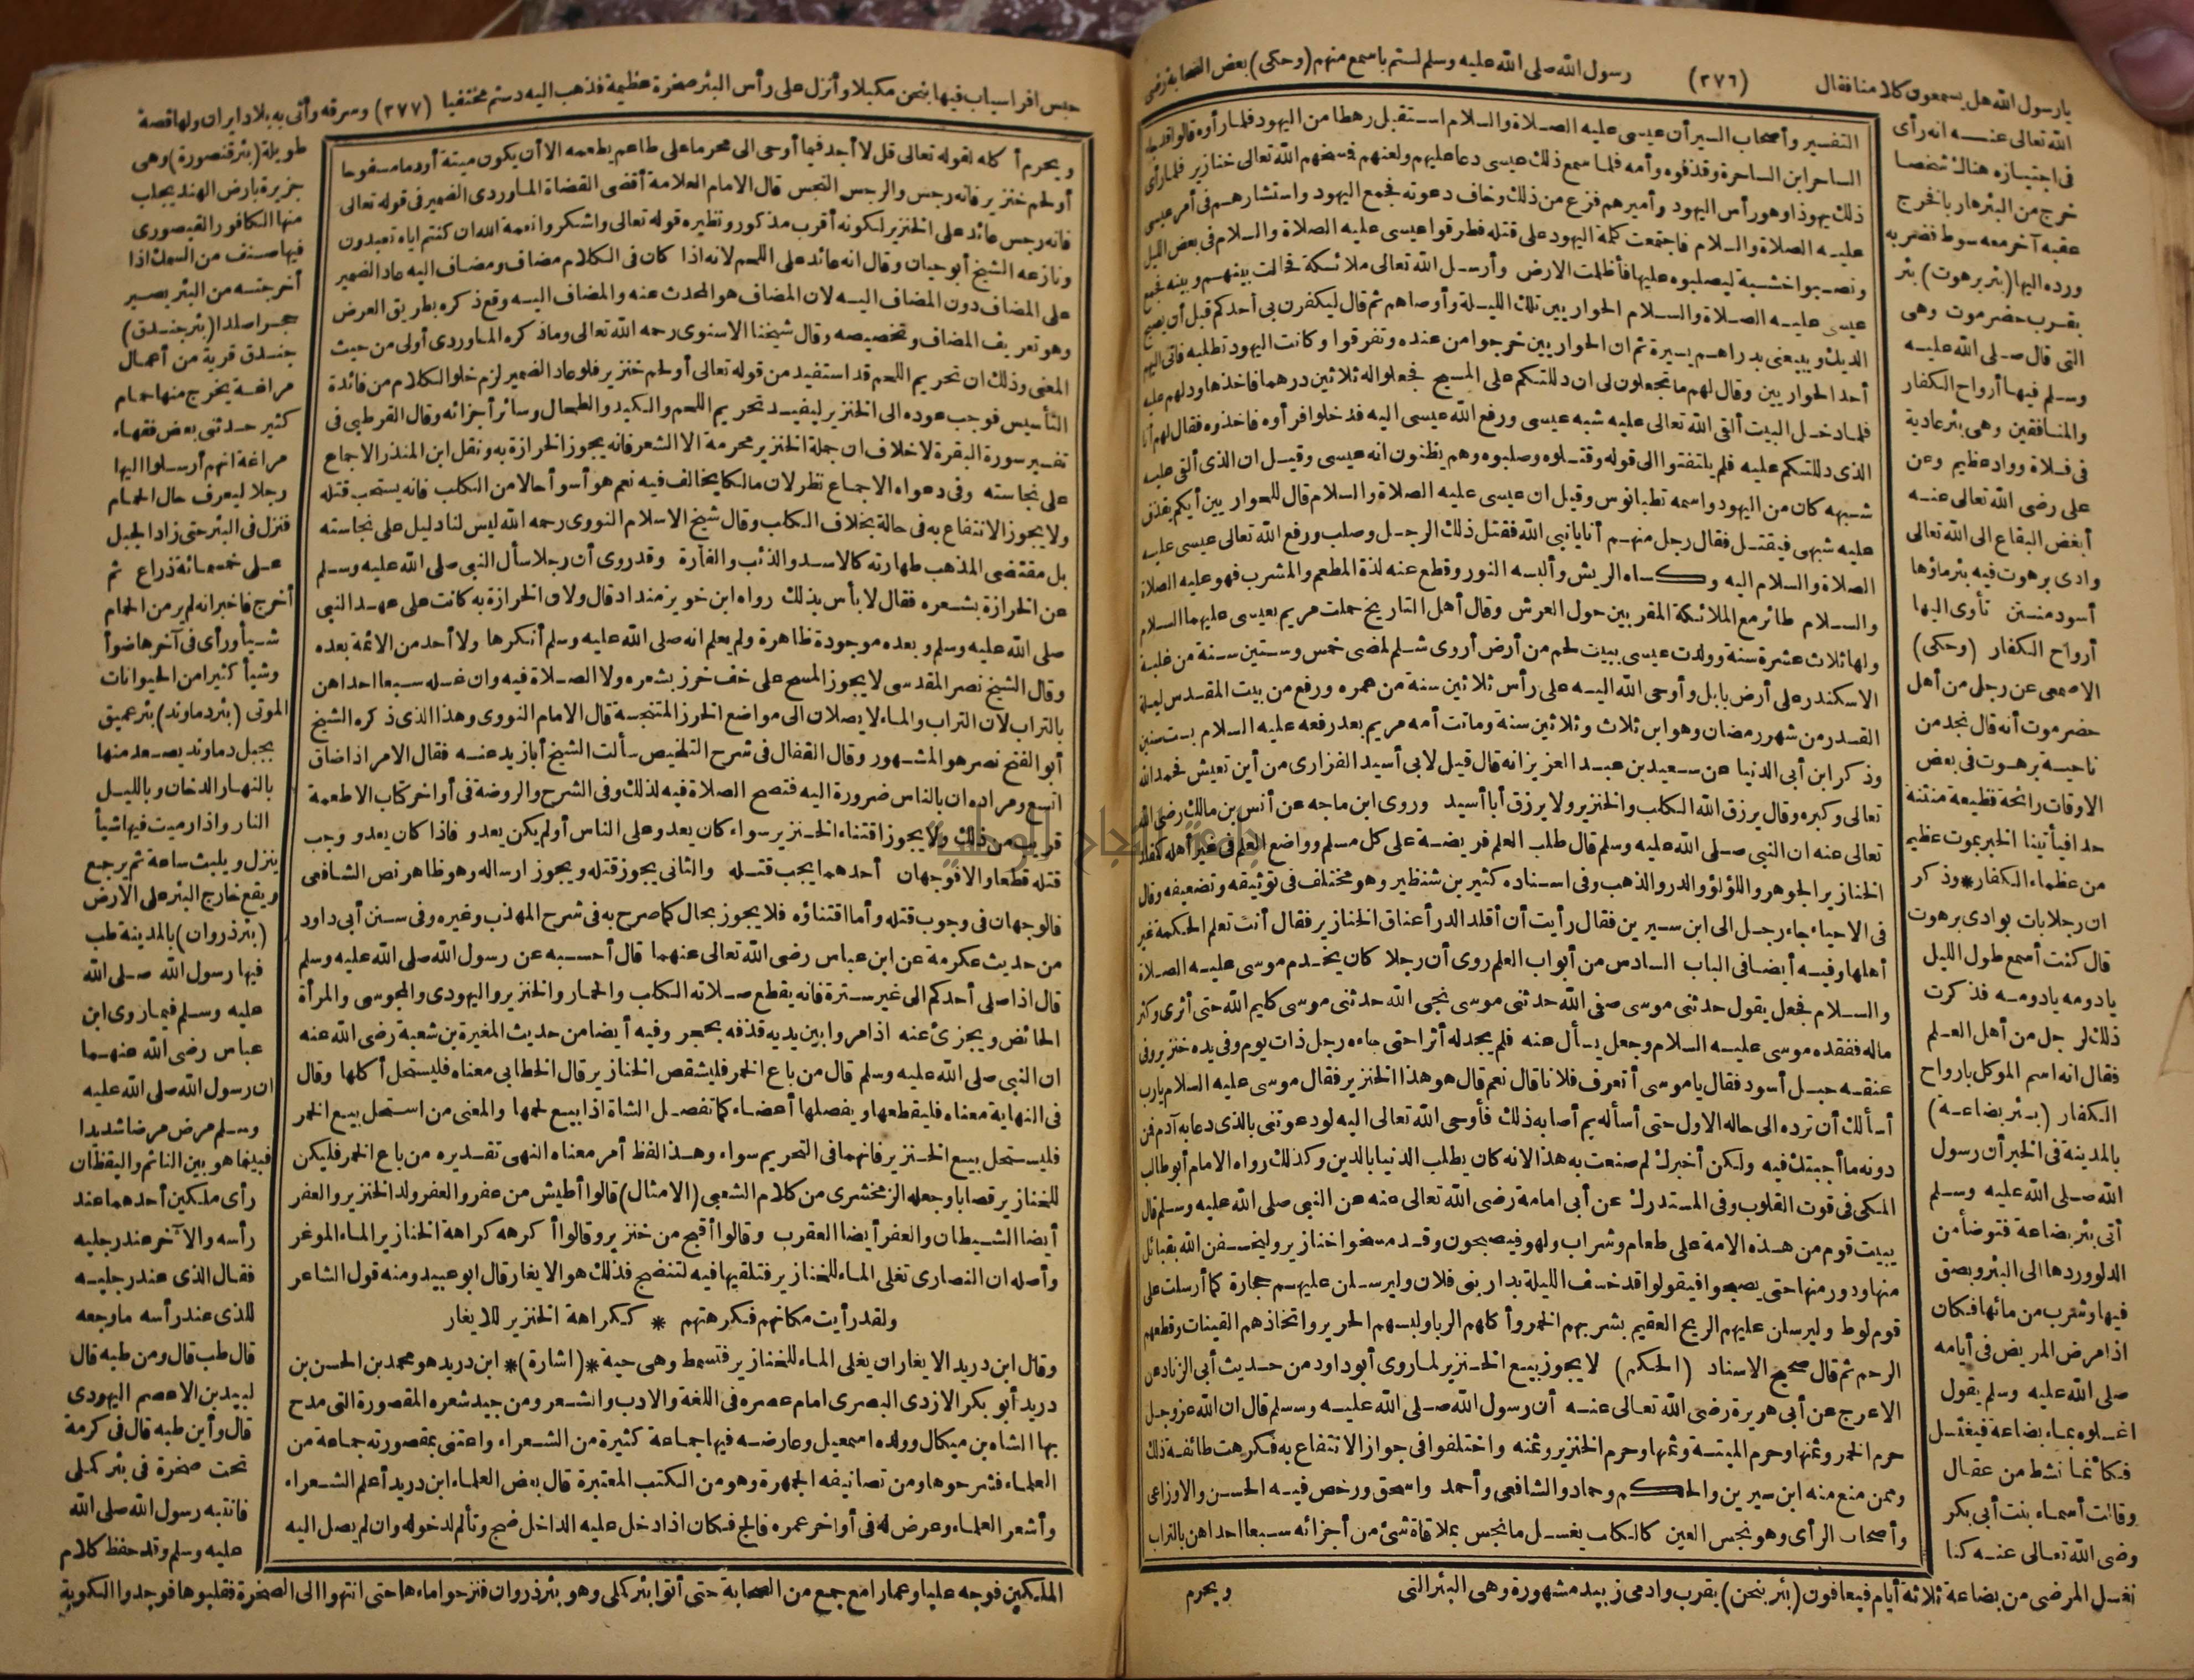 يا رسول الله هل يسمعون كلامنا فقال (٣٧٦) رسول الله صلى الله عليه وسلم لستم بأسمع منهم (وحكى) بعض الصحابة رضى
الله تعالى عنه انه رأى
فى اجتيازه هناك شخصا
خرج من البئر هاربا فخرج
عقبه آخر معه سوط فضربه
ورده اليها (بئر برهوت) بئر
بقرب حضرموت وهى
التى قال صلى الله عليه
وسلم فيها أرواح الكفار
والمنافقين وهى بئر عادية
فى فلاة وواد عظيم وعن
على رضى الله تعالى عنه
أبغض البقاع الى الله تعالى
وادى برهوت فيه بئر ماؤها
أسود منتن تأوى اليها
أرواح الكفار (وحكى)
الاصمعى عن رجل من أهل
حضرموت أنه قال نجد من
ناحية برهوت فى بعض
الاوقات رائحة فظيعة منتنة
جدا فيأتينا الخبر بموت عظيم
من عظماء الكفار * وذكر
ان رجلا بات بوادى برهوت
قال كنت أسمع طول الليل
يا دومه يا دومه فذكرت
ذلك لرجل من أهل العلم
فقال انه اسم الموكل بارواح
الكفار (بئر بضاعة)
بالمدينة فى الخبر أن رسول
الله صلى الله عليه وسلم
أتى بئر بضاعة فتوضأ من
الدلو وردها الى البئر وبصق
فيها وشرب من مائها فكان
اذا مرض المريض فى أيامه
صلى الله عليه وسلم يقول
اغسلوه بماء بضاعة فيغتسل
فكأنما نشط من عقال
وقالت أسماء بنت أبى بكر
رضى الله تعالى عنه كنا
نغسل المرضى من بضاعة ثلاثة أيام فيعافون (بئر بنجن) بقرب وادمى زبيد مشهورة وهى البئر التى
التفسير وأصحاب السير أن عيسى عليه الصلاة والسلام استقبل رهطا من اليهود فلما رأوه قالوا قد جاء
الساحر ابن الساحرة وقذفوه وأمه فلما سمع ذلك عيسى دعا عليهم ولعنهم فمسخهم الله تعالى خنازير فلما رأى
ذلك يهوذا وهو رأس اليهود وأميرهم فزع من ذلك وخاف دعوته فجمع اليهود واستشارهم فى أمر عيسى
عليه الصلاة والسلام فاجتمعت كلمة اليهود على قتله فطرقوا عيسى عليه الصلاة والسلام فى بعض الليل
ونصبوا خشبة ليصلبوه عليها فأظلمت الارض وأرسل الله تعالى ملائكة فحالت بينهم وبينه فجمع
عيسى عليه الصلاة والسلام الحواريين تلك الليلة وأوصاهم ثم قال ليكفرن بى أحدكم قبل أن يصيح
الديك ويبيعنى بدراهم يسيرة ثم ان الحواريين خرجوا من عنده وتفرقوا وكانت اليهود تطلبه فاتى اليهم
أحد الحواريين وقال لهم ما تجعلون لى ان دللتكم على المسيح فجعلوا له ثلاثين درهما فاخذها ودلهم عليه
فلما دخل البيت ألقى الله تعالى عليه شبه عيسى ورفع الله عيسى اليه فدخلوا فرأوه فاخذوه فقال لهم أنا
الذى دللتكم عليه فلم يلتفتوا الى قوله وقتلوه وصلبوه وهم يظنون انه عيسى وقيل ان الذى ألقى عليه
شبهه كان من اليهود واسمه تطيانوس وقيل ان عيسى عليه الصلاة والسلام قال للحواريين أيكم يقذف
عليه شبهى فيقتل فقال رجل منهم أنا يا نبى الله فقتل ذلك الرجل وصلب ورفع الله تعالى عيسى عليه
الصلاة والسلام اليه وكساه الريش وألبسه النور وقطع عنه لذة المطعم والمشرب فهو عليه الصلاة
والسلام طائر مع الملائكة المقربين حول العرش وقال أهل التاريخ حملت مريم بعيسى عليهما السلام
ولها ثلاث عشرة سنة وولدت عيسى ببيت لحم من أرض أورى شلم لمضى خمس وستين سنة من غلبة
الاسكندر على أرض بابل وأوحى الله اليه على رأس ثلاثين سنة من عمره ورفع من بيت المقدس ليلة
القدر من شهر رمضان وهو ابن ثلاث وثلاثين سنة وماتت أمه مريم بعد رفعه عليه السلام بست سنين
وذكر ابن أبى الدنيا عن سعيد بن عبد العزيز انه قال قيل لابى أسيد الفزارى من أين تعيش فحمد الله
تعالى وكبره وقال يرزق الله الكلب والخنزير ولا يرزق أبا أسيد وروى ابن ماجه عن أنس بن مالك رضى الله
تعالى عنه ان النبى صلى الله عليه وسلم قال طلب العلم فريضة على كل مسلم وواضع العلم فى غير أهله كمقلد
الخنازير الجوهر واللؤلؤ والدر والذهب وفى اسناده كثير بن شنظير وهو مختلف فى توثيقه وتضعيفه وقال
فى الاحياء جاء رجل الى ابن سيرين فقال رأيت أن أقلد الدر أعناق الخنازير فقال أنت تعلم الحكمة غير
أهلها وفيه أيضا فى الباب السادس من أبواب العلم روى أن رجلا كان يخدم موسى عليه الصلاة
والسلام فجعل يقول حدثنى موسى صفى الله حدثنى موسى نجى الله حدثنى موسى كليم الله حتى أثرى وكثر
ماله ففقده موسى عليه السلام وجعل يسأل عنه فلم يجد له أثرا حتى جاءه رجل ذات يوم وفى يده خنزير وفى
عنقه حبل أسود فقال يا موسى أتعرف فلانا قال نعم قال هو هذا الخنزير فقال موسى عليه السلام يارب
أسألك أن ترده الى حاله الاول حتى أسأله بم أصابه ذلك فأوحى الله تعالى اليه لو دعوتنى بالذى دعا به آدم فمن
دونه ما أجبتك فيه ولكن أخبرك لم صنعت به هذا لانه كان يطلب الدنيا بالدين وكذلك رواه الامام أبو طالب
المكى فى قوت القلوب وفى المستدرك عن أبى امامة رضى الله تعالى عنه عن النبى صلى الله عليه وسلم قال
يبيت قوم من هذه الامة على طعام وشراب ولهو فيصبحون وقد مسخوا خنازير وليخسفن الله بقبائل
منها ودور منها حتى يصبحوا فيقولوا قد خسف الليلة بدار بنى فلان وليرسلن عليهم حجارة كما أرسلت على
قوم لوط وليرسلن عليهم الريح العقيم بشربهم الخمر وأكلهم الربا ولبسهم الحرير واتخاذهم القينات وقطعهم
الرحم ثم قال صحيح الاسناد (الحكم) لا يجوز بيع الخنزير لما روى أبو داود من حديث أبى الزناد عن
الاعرج عن أبى هريرة رضى الله تعالى عنه أن رسول الله صلى الله عليه وسلم قال ان الله عز وجل
حرم الخمر وثمنها وحرم الميتة وثمنها وحرم الخنزير وثمنه واختلفوا فى جواز الانتفاع به فكرهت طائفة ذلك
وممن منع منه ابن سيرين والحكم وحماد والشافعى وأحمد واسحق ورخص فيه الحسن والاوزاعى
وأصحاب الرأى وهو نجس العين كالكلب يغسل ما نجس بملاقاة شئ من أجزائه سبعا احداهن بالتراب
ويحرم
حبس افراسياب فيها بنجن مكبلا وأنزل على رأس البئر صخرة عظيمة فذهب اليه رستم مختفيا (٣٧٧) وسرقه وأتى به بلاد ايران ولها قصة
ويحرم أكله لقوله تعالى قل لا أجد فيما أوحى الى محرما على طاعم يطعمه الا أن يكون ميتة أو دما مسفوحا
أو لحم خنزير فانه رجس والرجس النجس قال الامام العلامة أقضى القضاة الماوردى الضمير فى قوله تعالى
فانه رجس عائد على الخنزير لكونه أقرب مذكور ونظيره قوله تعالى واشكروا نعمة الله ان كنتم اياه تعبدون
ونازعه الشيخ أبو حيان وقال انه عائد على اللحم لانه اذا كان فى الكلام مضاف ومضاف اليه عاد الضمير
على المضاف دون المضاف اليه لان المضاف هو المحدث عنه والمضاف اليه وقع ذكره بطريق العرض
وهو تعريف المضاف وتخصيصه وقال شيخنا الاسنوى رحمه الله تعالى وما ذكره الماوردى أولى من حيث
المعنى وذلك ان تحريم اللحم قد استفيد من قوله تعالى أو لحم خنزير فلو عاد الضمير لزم خلو الكلام من فائدة
التأسيس فوجب عوده الى الخنزير ليفيد تحريم اللحم والكبد والطحال وسائر أجزائه وقال القرطبى فى
تفسير سورة البقرة لا خلاف ان جملة الخنزير محرمة الا الشعر فانه يجوز الخرازة به ونقل ابن المنذر الاجماع
على نجاسته وفى دعواه الاجماع نظر لان مالكا يخالف فيه نعم هو أسوأ حالا من الكلب فانه يستحب قتله
ولا يجوز الانتفاع به فى حالة بخلاف الكلب وقال شيخ الاسلام النووى رحمه الله ليس لنا دليل على نجاسته
بل مقتضى المذهب طهارته كالاسد والذئب والفأرة وقد روى أن رجلا سأل النبى صلى الله عليه وسلم
عن الخرازة بشعره فقال لا بأس بذلك رواه ابن خويز منداد قال ولان الخرازة به كانت على عهد النبى
صلى الله عليه وسلم وبعده موجودة ظاهرة ولم يعلم انه صلى الله عليه وسلم أنكرها ولا أحد من الائمة بعده
وقال الشيخ نصر المقدسى لا يجوز المسح على خف خرز بشعره ولا الصلاة فيه وان غسله سبعا احداهن
بالتراب لان التراب والماء لا يصلان الى مواضع الخرز المتنجسة قال الامام النووى وهذا الذى ذكره الشيخ
أبو الفتح نصر هو المشهور وقال القفال فى شرح التلخيص سألت الشيخ أبا زيد عنه فقال الامر اذا ضاق
اتسع ومراده ان بالناس ضرورة اليه فتصح الصلاة فيه لذلك وفى الشرح والروضة فى أواخر كتاب الاطعمة
قريب من ذلك ولا يجوز اقتناء الخنزير سواء كان يعدو على الناس أو لم يكن يعدو فاذا كان يعدو وجب
قتله قطعا والا فوجهان أحدهما يجب قتله والثانى يجوز قتله ويجوز ارساله وهو ظاهر نص الشافعى
فالوجهان فى وجوب قتله وأما اقتناؤه فلا يجوز بحال كما صرح به فى شرح المهذب وغيره وفى سنن أبى داود
من حديث عكرمة عن ابن عباس رضى الله تعالى عنهما قال أحسبه عن رسول الله صلى الله عليه وسلم
قال اذا صلى أحدكم الى غير سترة فانه يقطع صلاته الكلب والحمار والخنزير واليهودى والمجوسى والمرأة
الحائض ويجزئ عنه اذا مروا بين يديه قذفه بحجر وفيه أيضا من حديث المغيرة بن شعبة رضى الله عنه
ان النبى صلى الله عليه وسلم قال من باع الخمر فليشقص الخنازير قال الخطابى معناه فليستحل أكلها وقال
فى النهاية معناه فليقطعها ويفصلها أعضاء كما تفصل الشاة اذا بيع لحمها والمعنى من استحل بيع الخمر
فليستحل بيع الخنزير فانهما فى التحريم سواء وهذا لفظ أمر معناه النهى تقديره من باع الخمر فليكن
للخنازير قصابا وجعله الزمخشرى من كلام الشعبى (الامثال) قالوا أطيش من عفر والعفر ولد الخنزير والعفر
أيضا الشيطان والعفر أيضا العقرب وقالوا أقبح من خنزير وقالوا أكره كراهة الخنازير الماء الموغر
وأصله ان النصارى تغلى الماء للخنازير فتلقيها فيه لتنضج فذلك هو الايغار قال ابو عبيد ومنه قول الشاعر
ولقد رأيت مكانهم فكرهتهم * ككراهة الخنزير للايغار
وقال ابن دريد الايغار ان يغلى الماء للخنازير فتسمط وهى حية * (اشارة) * ابن دريد هو محمد بن الحسن بن
دريد أبو بكر الازدى البصرى امام عصره فى اللغة والادب والشعر ومن جيد شعره المقصورة التى مدح
بها الشاه بن ميكال وولده اسمعيل وعارضه فيها جماعة كثيرة من الشعراء واعتنى بمقصورته جماعة من
العلماء فشرحوها ومن تصانيفه الجمهرة وهو من الكتب المعتبرة قال بعض العلماء ابن دريد أعلم الشعراء
وأشعر العلماء وعرض له فى أواخر عمره فالج فكان اذا دخل عليه الداخل ضج وتألم لدخوله وان لم يصل اليه
طويلة (بئر قنصورة) وهى
جزيرة بارض الهند يجلب
منها الكافور القيصورى
فيها صنف من السمك اذا
أخرجته من البئر يصير
حجرا صلدا (بئر جندق)
جندق قرية من أعمال
مراغة يخرج منها حمام
كثير حدثنى بعض فقهاء
مراغة انهم أرسلوا اليها
رجلا ليعرف حال الحمام
فنزل فى البئر حتى زاد الحبل
على خمسمائة ذراع ثم
أخرج فاخبر انه لم ير من الحمام
شيأ ورأى فى آخرها ضوأ
وشيأ كثيرا من الحيوانات
الموتى (بئر دماوند) بئر عميق
بجبل دماوند يصعد منها
بالنهار الدخان وبالليل
النار واذا رميت فيها شيأ
ينزل ويلبث ساعة ثم يرجع
ويقع خارج البئر على الارض
(بئر ذروان) بالمدينة طب
فيها رسول الله صلى الله
عليه وسلم فيما روى ابن
عباس رضى الله عنهما
ان رسول الله صلى الله عليه
وسلم مرض مرضا شديدا
فبينما هو بين النائم واليقظان
رأى ملكين أحدهما عند
رأسه والآخر عند رجليه
فقال الذى عند رجليه
للذى عند رأسه ما وجعه
قال طب قال ومن طبه قال
لبيد بن الاعصم اليهودى
قال وأين طبه قال فى كرمة
تحت صخرة فى بئر كملى
فانتبه رسول الله صلى الله
عليه وسلم وقد حفظ كلام
الملكين فوجه عليا وعمارا مع جمع من الصحابة حتى أتوا بئر كملى وهو بئر ذروان فنزحوا ماءها حتى انتهوا الى الصخرة فقلبوها فوجدوا الكوبة